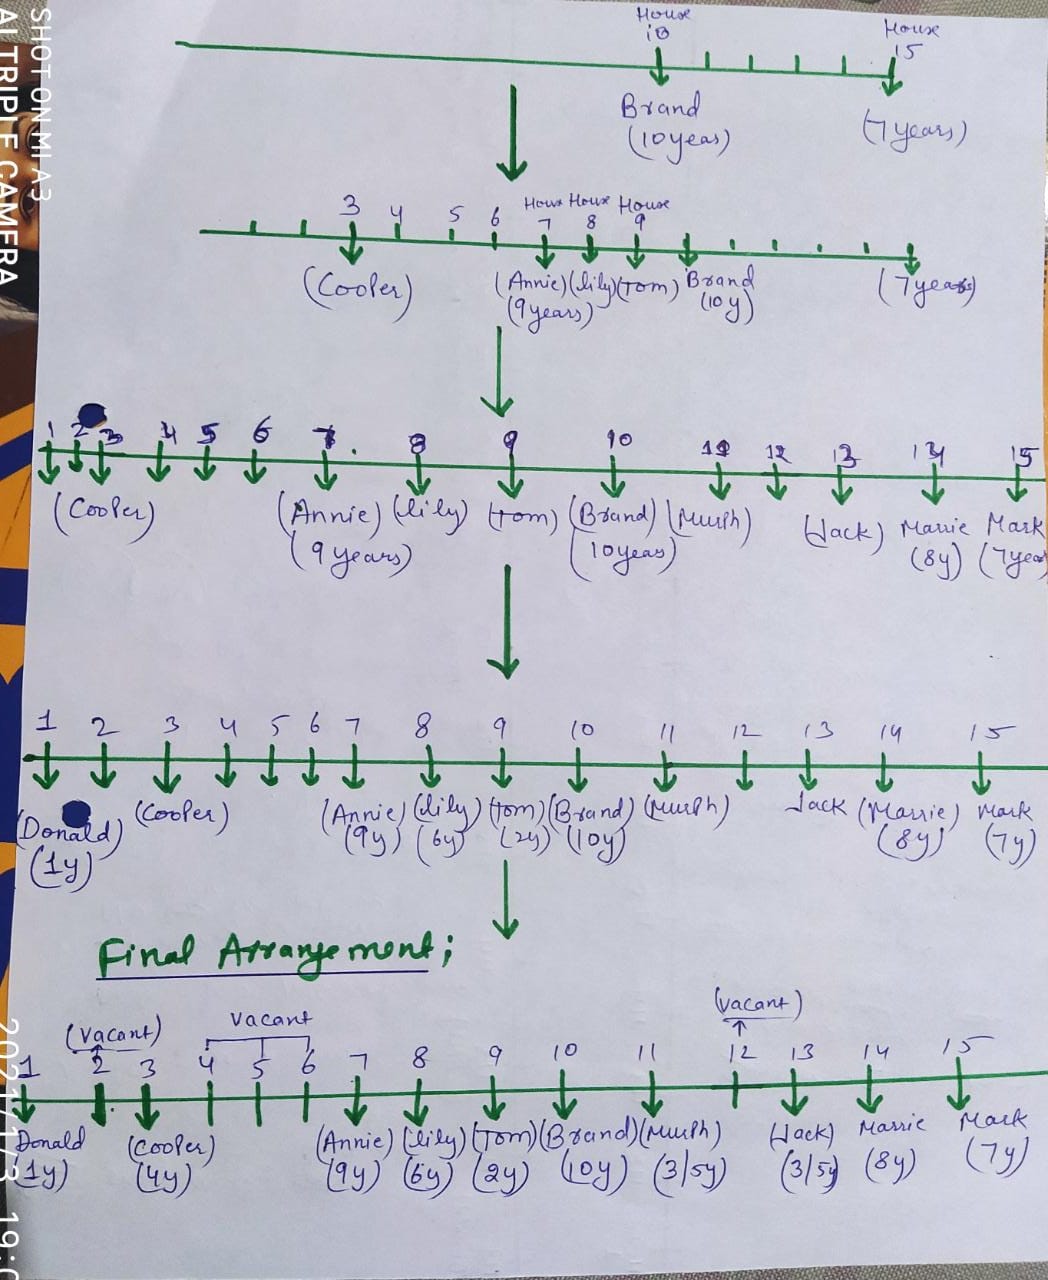 House House
10 15
Brand (7 years)
(10 years)
House House House
3 4 5 6 7 8 9
(Cooper) (Annie) (Lily) (Tom) Brand (7 years)
(9 years) (10y)
1 2 3 4 5 6 7 8 9 10 11 12 13 14 15
(Cooper) (Annie) (Lily) (Tom) (Brand) (Murph) (Jack) Marrie Mark
(9 years) (10 years) (8y) (7 year
1 2 3 4 5 6 7 8 9 10 11 12 13 14 15
(Donald) (Cooper) (Annie) (Lily) (Tom) (Brand) (Murph) Jack (Marrie) Mark
(1y) (9y) (6y) (2y) (10y) (8y) (7y)
Final Arrangement;
(Vacant) Vacant (Vacant)
1 2 3 4 5 6 7 8 9 10 11 12 13 14 15
Donald (Cooper) (Annie) (Lily) (Tom) (Brand) (Murph) (Jack) Marrie Mark
(1y) (4y) (9y) (6y) (2y) (10y) (3/5y) (3/5y) (8y) (7y)
SHOT ON MI A3
AI TRIPLE CAMERA
2021/1/3 19: